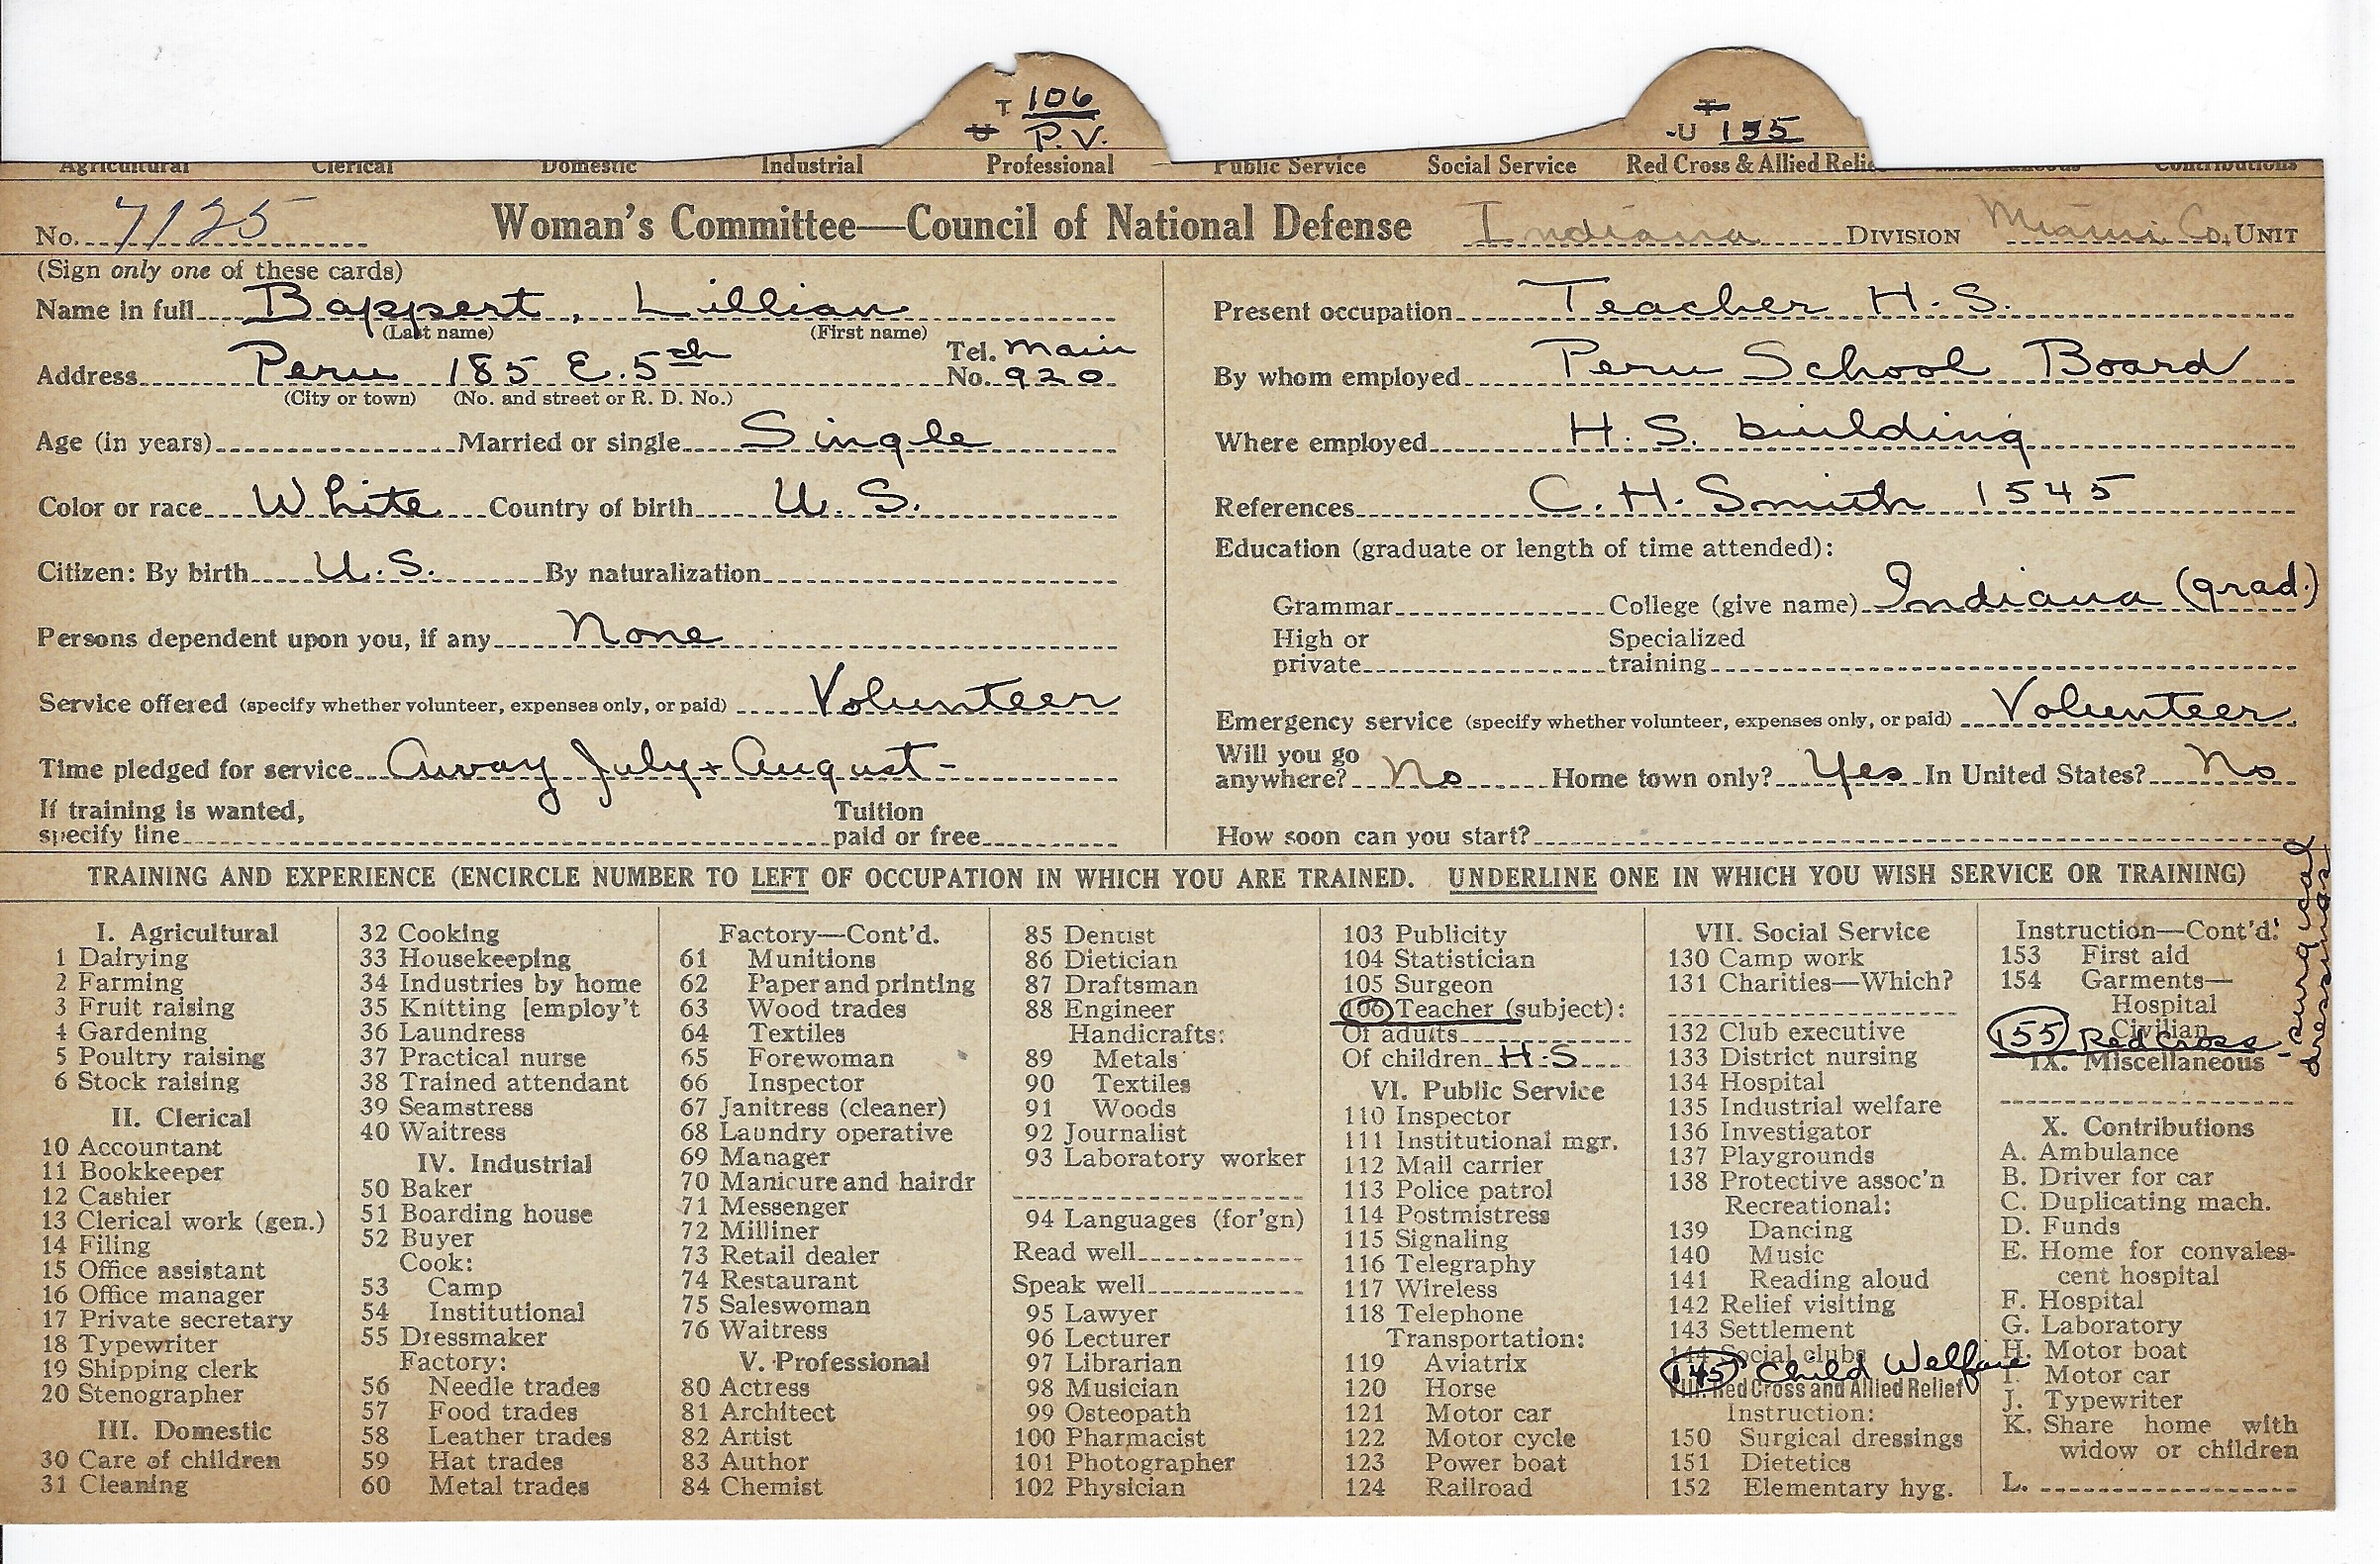 T 106
U P.V.
T
-U 155
Agricultural Clerical Domestic Industrial Professional Public Service Social Service Red Cross & Allied Relie Miscellaneous Contributions
No. 7125 Woman's Committee—Council of National Defense Indiana DIVISION Miami Co. UNIT
(Sign only one of these cards)
Name in full Bappert, Lillian
(Last name) (First name)
Address Peru 185 E. 5th Tel. No. Main 920
(City or town) (No. and street or R. D. No.)
Age (in years) Married or single Single
Color or race White Country of birth U. S.
Citizen: By birth U.S. By naturalization
Persons dependent upon you, if any None
Service offered (specify whether volunteer, expenses only, or paid) Volunteer
Time pledged for service Away July + August -
If training is wanted, specify line Tuition paid or free
Present occupation Teacher H.S.
By whom employed Peru School Board
Where employed H.S. building
References C. H. Smith 1545
Education (graduate or length of time attended):
Grammar College (give name) Indiana (grad.)
High or private Specialized training
Emergency service (specify whether volunteer, expenses only, or paid) Volunteer
Will you go anywhere? No Home town only? Yes In United States? No
How soon can you start?
TRAINING AND EXPERIENCE (ENCIRCLE NUMBER TO LEFT OF OCCUPATION IN WHICH YOU ARE TRAINED. UNDERLINE ONE IN WHICH YOU WISH SERVICE OR TRAINING)
I. Agricultural
1 Dairying
2 Farming
3 Fruit raising
4 Gardening
5 Poultry raising
6 Stock raising
II. Clerical
10 Accountant
11 Bookkeeper
12 Cashier
13 Clerical work (gen.)
14 Filing
15 Office assistant
16 Office manager
17 Private secretary
18 Typewriter
19 Shipping clerk
20 Stenographer
III. Domestic
30 Care of children
31 Cleaning
32 Cooking
33 Housekeeping
34 Industries by home
35 Knitting [employ't
36 Laundress
37 Practical nurse
38 Trained attendant
39 Seamstress
40 Waitress
IV. Industrial
50 Baker
51 Boarding house
52 Buyer
Cook:
53 Camp
54 Institutional
55 Dressmaker
Factory:
56 Needle trades
57 Food trades
58 Leather trades
59 Hat trades
60 Metal trades
Factory—Cont'd.
61 Munitions
62 Paper and printing
63 Wood trades
64 Textiles
65 Forewoman
66 Inspector
67 Janitress (cleaner)
68 Laundry operative
69 Manager
70 Manicure and hairdr
71 Messenger
72 Milliner
73 Retail dealer
74 Restaurant
75 Saleswoman
76 Waitress
V. Professional
80 Actress
81 Architect
82 Artist
83 Author
84 Chemist
85 Dentist
86 Dietician
87 Draftsman
88 Engineer
Handicrafts:
89 Metals
90 Textiles
91 Woods
92 Journalist
93 Laboratory worker
94 Languages (for'gn)
Read well
Speak well
95 Lawyer
96 Lecturer
97 Librarian
98 Musician
99 Osteopath
100 Pharmacist
101 Photographer
102 Physician
103 Publicity
104 Statistician
105 Surgeon
106 Teacher (subject):
Of adults
Of children H.S.
VI. Public Service
110 Inspector
111 Institutional mgr.
112 Mail carrier
113 Police patrol
114 Postmistress
115 Signaling
116 Telegraphy
117 Wireless
118 Telephone
Transportation:
119 Aviatrix
120 Horse
121 Motor car
122 Motor cycle
123 Power boat
124 Railroad
VII. Social Service
130 Camp work
131 Charities—Which?
132 Club executive
133 District nursing
134 Hospital
135 Industrial welfare
136 Investigator
137 Playgrounds
138 Protective assoc'n
Recreational:
139 Dancing
140 Music
141 Reading aloud
142 Relief visiting
143 Settlement
144 Social clubs
145 Child Welfare
VIII. Red Cross and Allied Relief
Instruction:
150 Surgical dressings
151 Dietetics
152 Elementary hyg.
Instruction—Cont'd:
153 First aid
154 Garments—
Hospital
Civilian
155 Red Cross - surgical dressings
IX. Miscellaneous
X. Contributions
A. Ambulance
B. Driver for car
C. Duplicating mach.
D. Funds
E. Home for convales-
cent hospital
F. Hospital
G. Laboratory
H. Motor boat
I. Motor car
J. Typewriter
K. Share home with
widow or children
L.